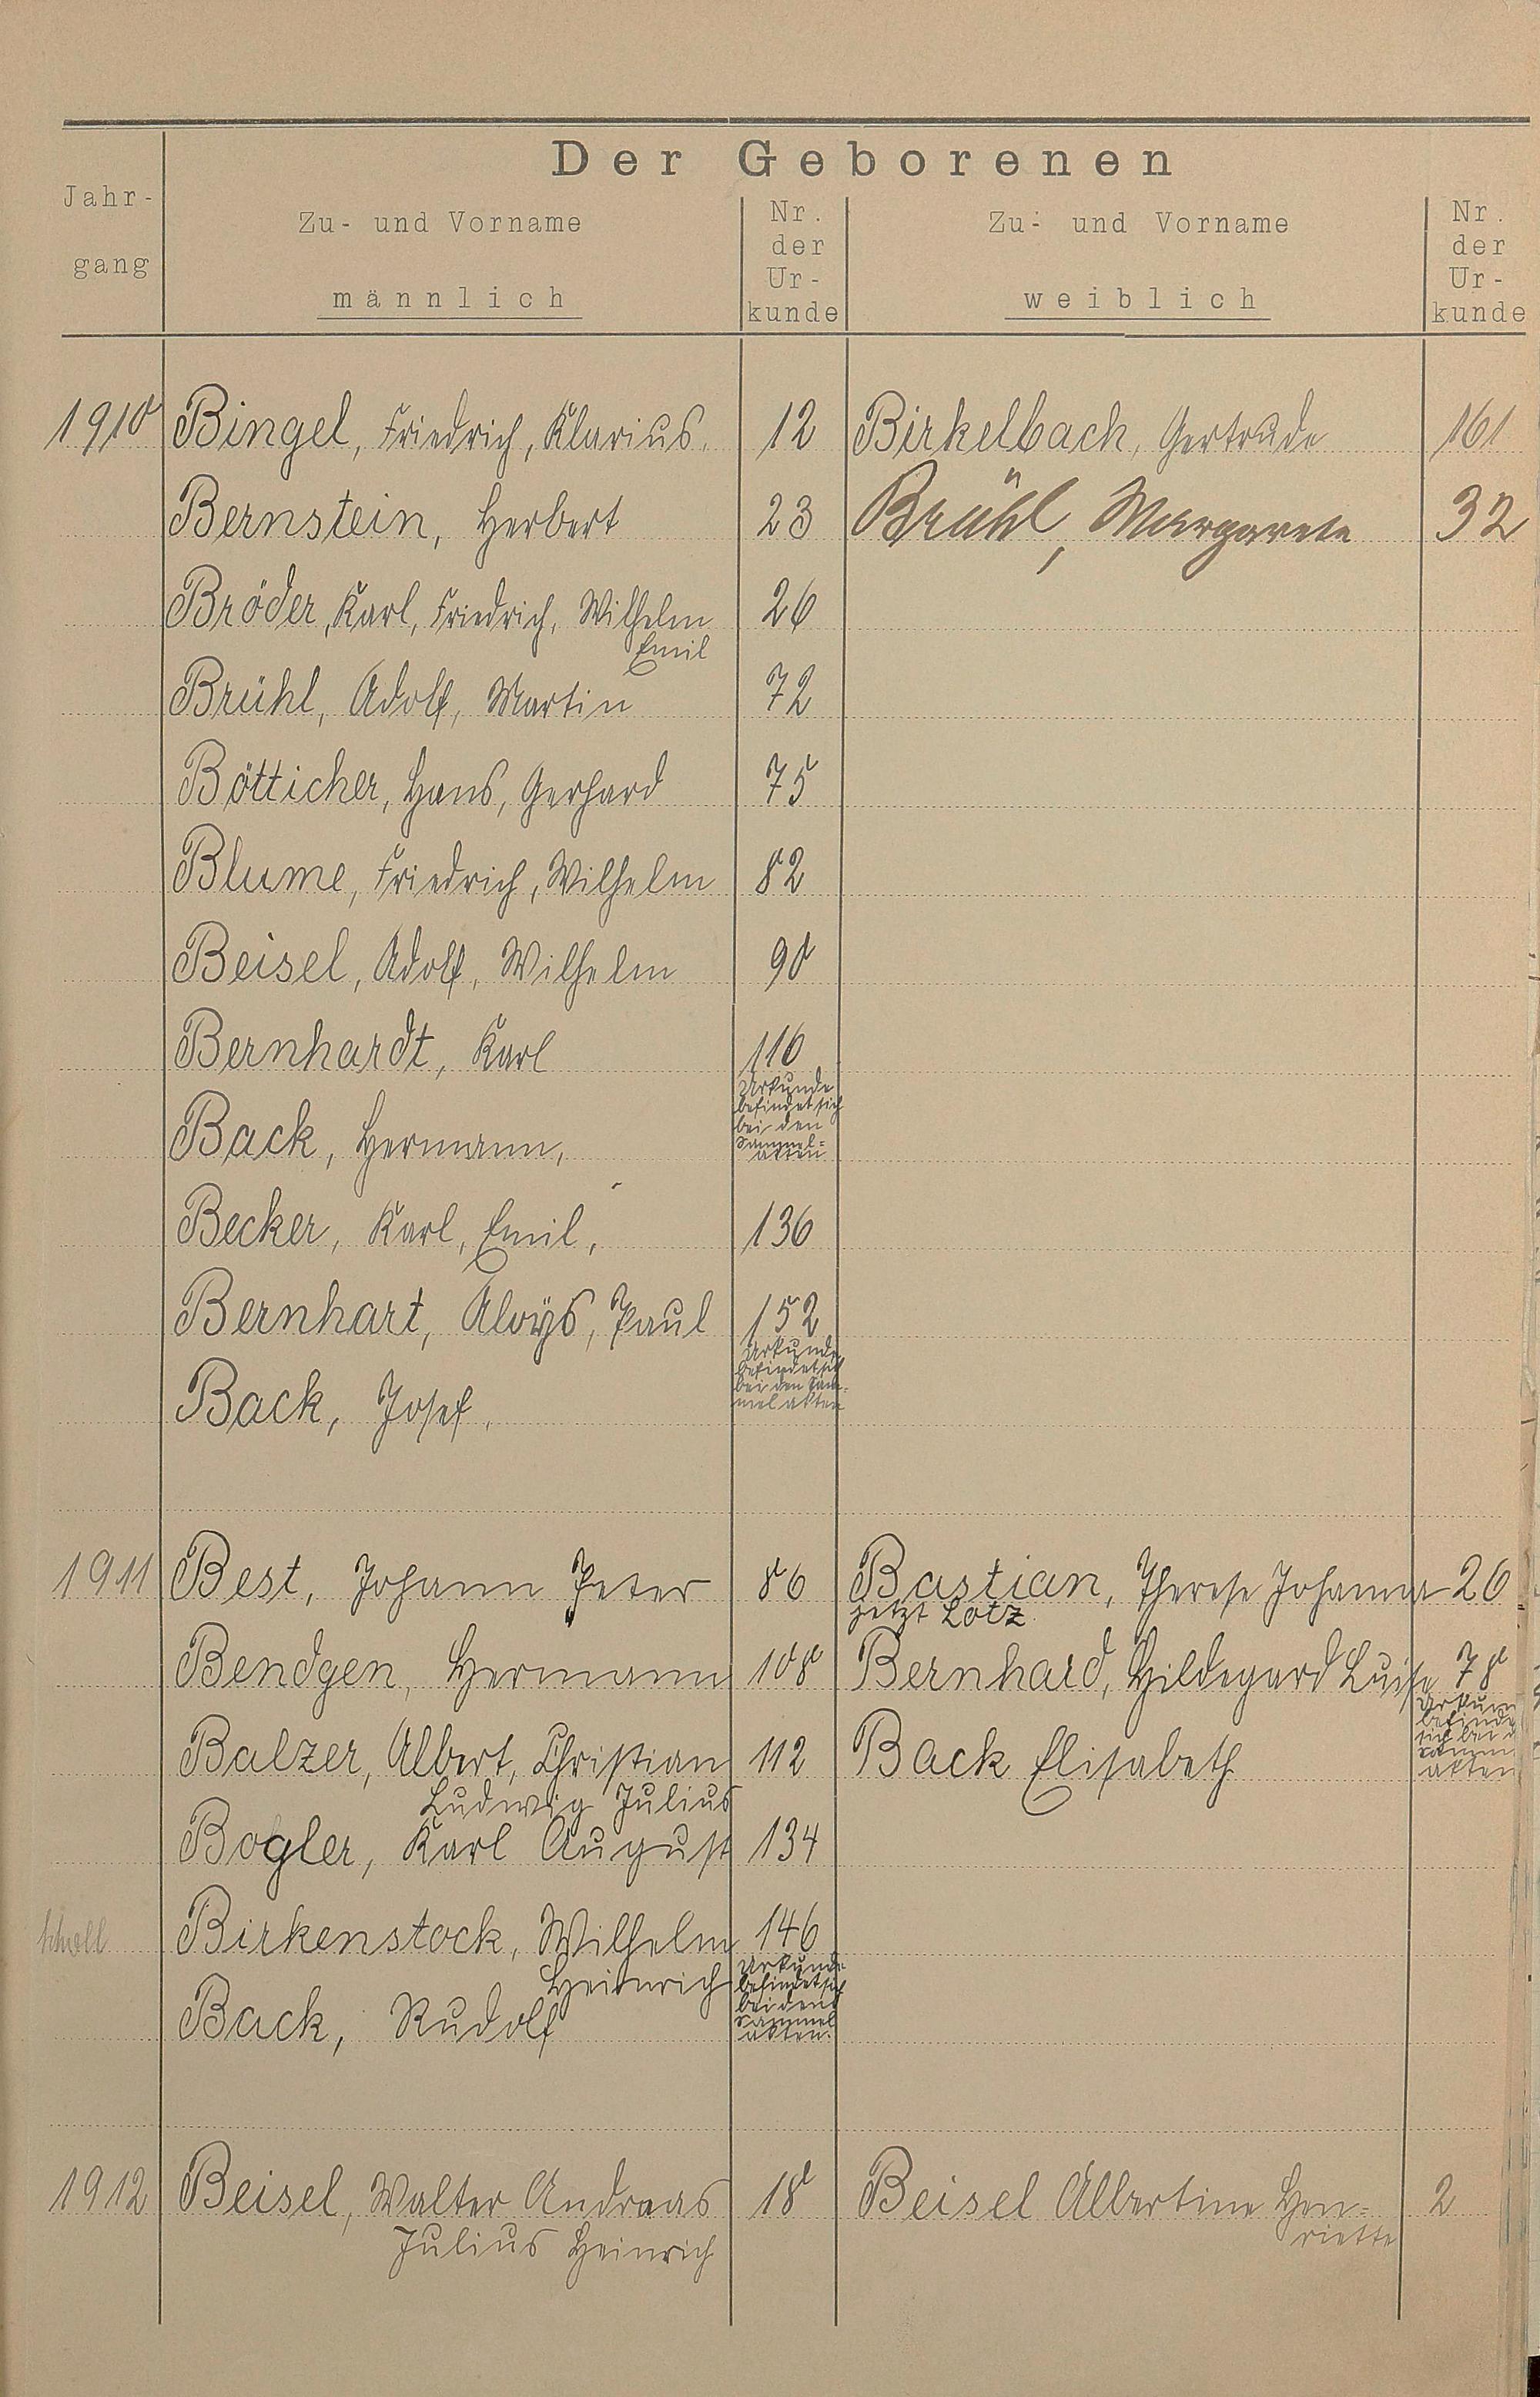 Der Geborenen
Jahr-
gang
Zu- und Vorname
männlich
Nr.
der
Ur-
kunde
Zu- und Vorname
weiblich
Nr.
der
Ur-
kunde
1910 Bingel, Friedrich, Klarius. 12 Birkelbach, Gertrude 161
Bernstein, Herbert 23 Brühl, Margarete 32
Bröder, Karl, Friedrich, Wilhelm 26
Emil
Brühl, Adolf, Martin 72
Bötticher, Hans, Gerhard 75
Blume, Friedrich, Wilhelm 82
Beisel, Adolf, Wilhelm 90
Bernhardt, Karl 116
Back, Hermann, Urkunde
befindet sich
bei den
Sammel=
akten
Becker, Karl, Emil, 136
Bernhart, Aloÿs, Paul 152
Back, Josef, Urkunde
befindet sich
bei den Sam-
mel akten
1911 Best, Johann Peter 86 Bastian, Therese Johanna 26
jetzt Lotz
Bendgen, Hermann 108 Bernhard, Hildegard Luise 78
Balzer, Albert, Christian 112 Back Elisabeth
Ludwig Julius
Urkun
befinde
sich bei d
Samm
akten
Bogler, Karl August 134
Birkenstock, Wilhelm 146
Heinrich
Back, Rudolf Urkunde
befindet sich
bei den
Sammel
akten.
1912 Beisel, Walter Andreas 18 Beisel Albertine Hen= 2
Julius Heinrich riette